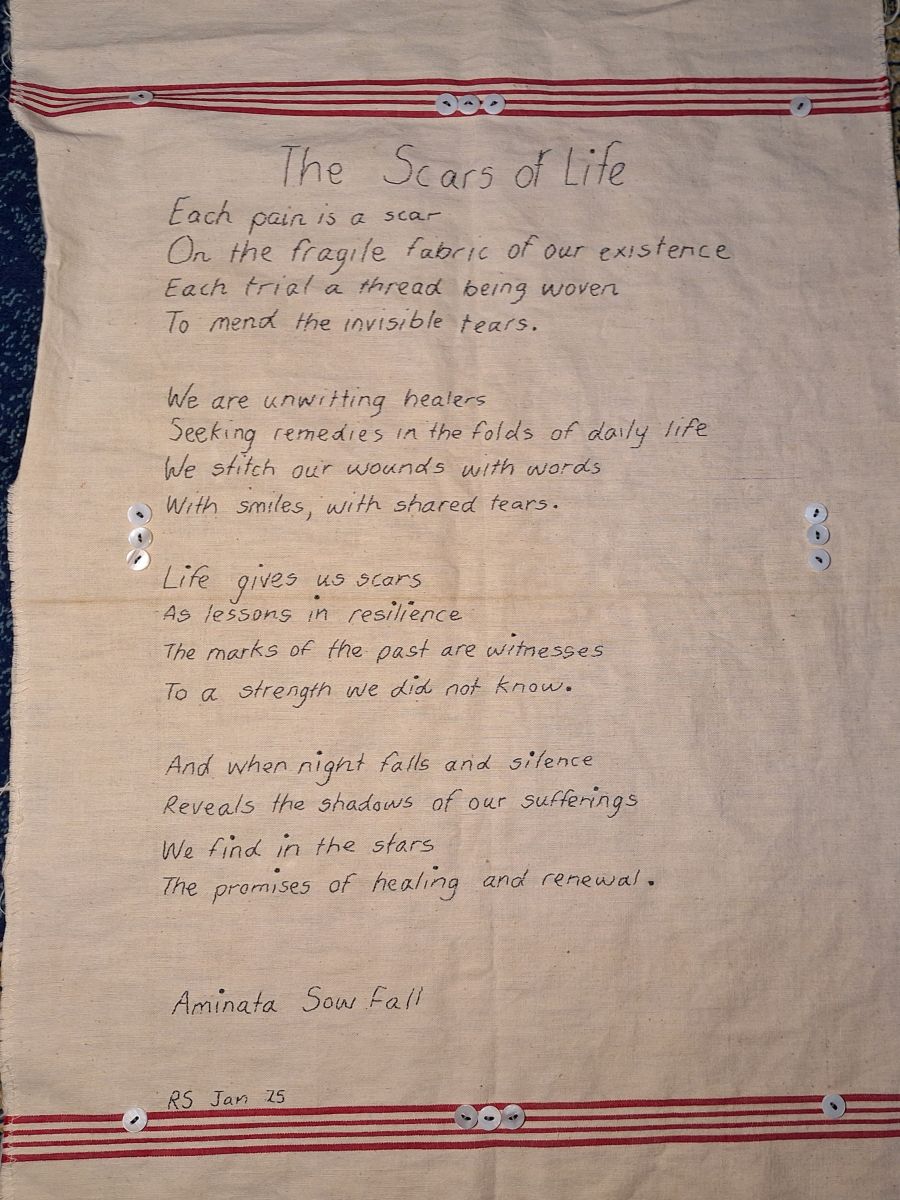 The Scars of Life
Each pain is a scar
On the fragile fabric of our existence
Each trial a thread being woven
To mend the invisible tears.
We are unwitting healers
Seeking remedies in the folds of daily life
We stitch our wounds with words
With smiles, with shared tears.
Life gives us scars
As lessons in resilience
The marks of the past are witnesses
To a strength we did not know.
And when night falls and silence
Reveals the shadows of our sufferings
We find in the stars
The promises of healing and renewal.
Aminata Sow Fall
RS Jan 25